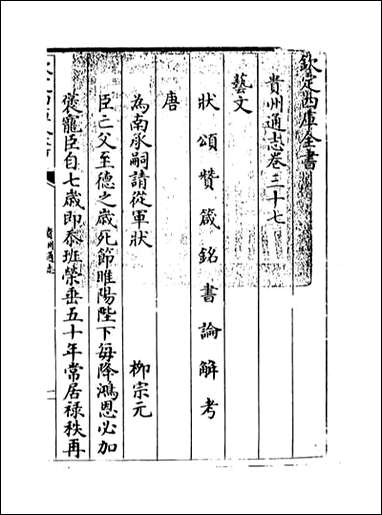 欽定四庫全書
貴州通志卷三十七
藝文
狀 頌 贊 箴 銘 書 論 解 考
唐
為南承嗣請從軍狀 柳宗元
臣亡父至德之歲死節睢陽陛下每降鴻恩必加
褒寵臣自七歲即忝班榮垂五十年常居祿秩再
貴州通志
一